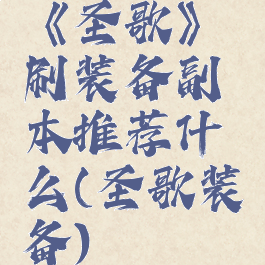 《圣歌》
刷装备副
本推荐什
么(圣歌装
备)